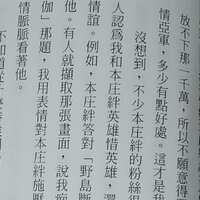 放不下那一千萬，所以不願意得
情亞軍，多少有點好處。這才是我
沒想到，不少本庄絆的粉絲很
人認為我和本庄絆英雄惜英雄，
情誼。例如，本庄絆答對「野島斷
他。有人就擷取那張畫面，說我
伽」那題，我用表情對本庄絆施壓
情脈脈看著他。
不知道從